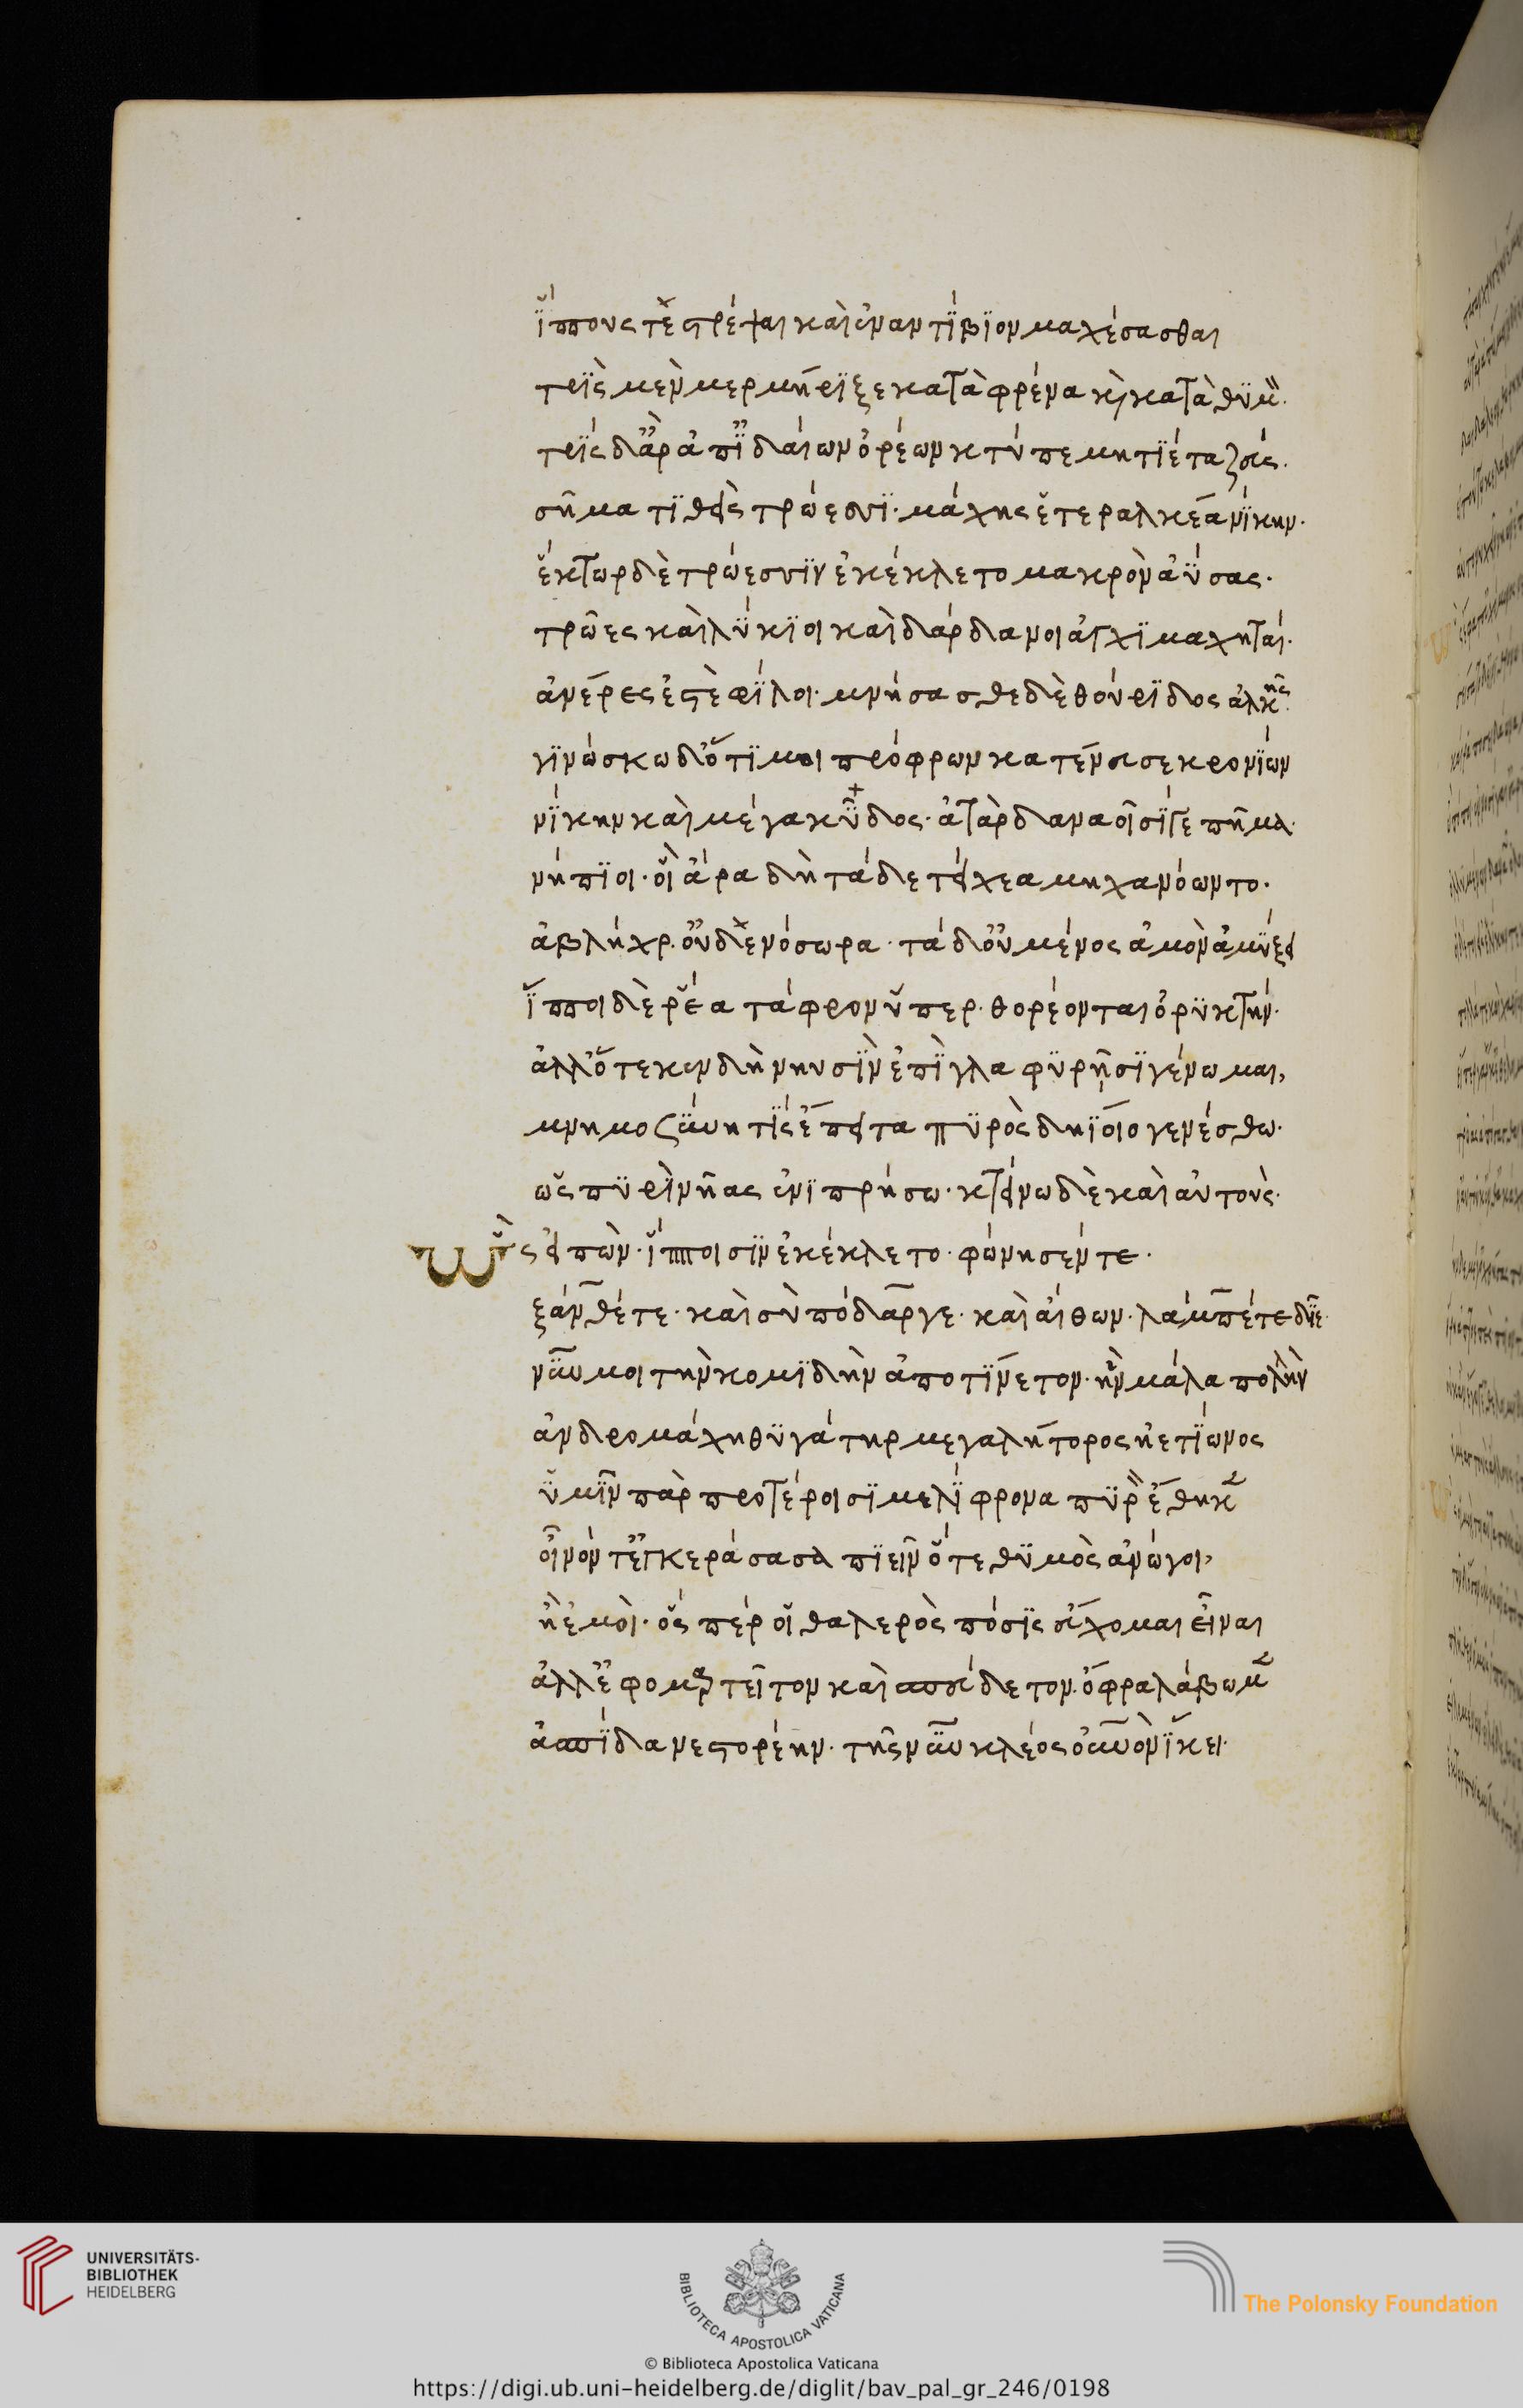 ἵππους τὲ στρέψαι καὶ ἐναντίβιον μαχέσασθαι
τρὶς μὲν μερμήριξε κατὰ φρένα κὶ κατὰ θυμ.
τρὶς δ' ἂρ ἀπ' ἰδαίων ὀρέων κτύπε μητίετα ζεύς.
σῆμα τιθεὶς τρώεσσι· μάχης ἑτεραλκέα νίκην.
ἕκτωρ δὲ τρώεσσιν ἐκέκλετο μακρὸν ἀΰσας.
τρῶες καὶ λύκιοι καὶ δάρδανοι ἀγχιμαχηταί.
ἀνέρες ἐστὲ φίλοι· μνήσασθε δὲ θούριδος ἀλκῆς.
γινώσκω δ' ὅτι μοι πρόφρων κατένευσε κρονίων
νίκην καὶ μέγα κῦδος· ἀτὰρ δαναοῖσί γε πῆμα.
νήπιοι· οἳ ἄρα δὴ τάδε τείχεα μηχανόωντο.
ἀβλήχρ. οὐδ' ἐνόσωρα· τά δ' οὐ μένος ἀμὸν ἀμύξει
ἵπποι δὲ ῥέα τάφρον ὕπερ· θορέονται ὀρυκτήν.
ἀλλ' ὅτε κεν δὴ νηυσὶν ἐπὶ γλαφυρῇσι γένωμαι,
μνημοσύνη τίς ἔπειτα πυρὸς δηΐοιο γενέσθω.
ὡς πυρὶ νῆας ἐνιπρήσω· κτείνω δὲ καὶ αὐτούς.
Ὣς εἰπὼν· ἵπποισιν ἐκέκλετο· φώνησέν τε.
ξάνθέ τε· καὶ σὺ πόδαργε· καὶ αἴθων· λάμπέ τε δῖε.
νῦν μοι τὴν κομιδὴν ἀποτίνετον· ἣν μάλα πολλὴν
ἀνδρομάχη θυγάτηρ μεγαλήτορος ἠετίωνος
ὑμῖν πὰρ προτέροισι μελίφρονα πυρὸν ἔθηκεν
οἶνόν τ' ἐγκεράσασα πιεῖν ὅτε θυμὸς ἀνώγοι,
ἢ ἐμοὶ· ὅς πέρ οἱ θαλερὸς πόσις εὔχομαι εἶναι
ἀλλ' ἐφομαρτεῖτον καὶ σπεύδετον. ὄφρα λάβωμεν
ἀσπίδα νεστορέην· τῆς νῦν κλέος οὐρανὸν ἵκει.
UNIVERSITÄTS-
BIBLIOTHEK
HEIDELBERG
BIBLIOTECA APOSTOLICA VATICANA
The Polonsky Foundation
© Biblioteca Apostolica Vaticana
https://digi.ub.uni-heidelberg.de/diglit/bav_pal_gr_246/0198